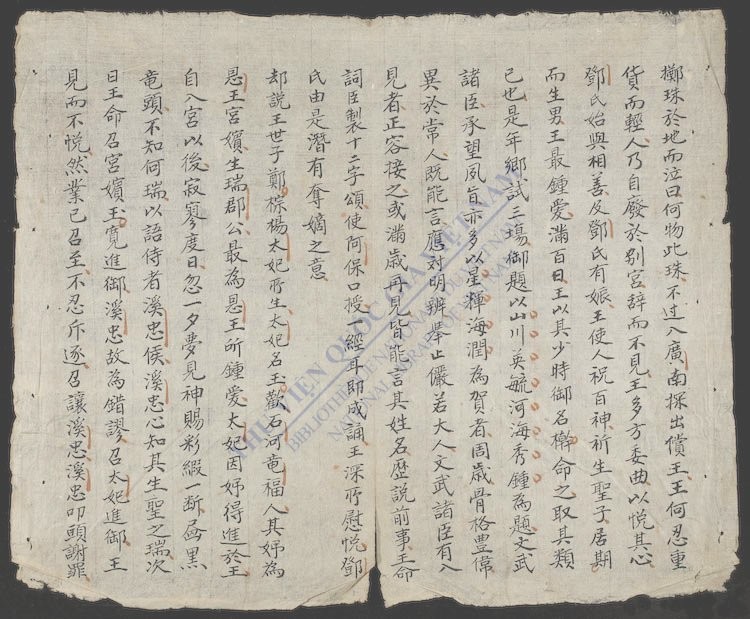 擲珠於地而泣曰何物此珠不过入廣南探出償王王何忍重
貨而輕人乃自廢於別宮辞而不見王多方委曲以悦其心
鄧氏始與相善及鄧氏有娠王使人祝百神祈生聖子居期
而生男王最鍾爱滿百日王以其少時御名檊命之取其類
己也是年鄉試三塲御題以山川英毓河海秀鍾為題文武
諸臣承望夙旨亦多以星輝海潤為賀者周歲骨格豊偉
異於常人既能言應对明辨舉止儼若大人文武諸臣有入
見者正容接之或滿歲再見皆能言其姓名歷説前事王命
詞臣製十二字頌使阿保口授一經耳即成誦王深所慰悦鄧
氏由是潛有奪嫡之意
却説王世子鄭棕楊太妃所生太妃名玉歡石河竜福人其姊為
恩王宮嬪生瑞郡公最為恩王所鍾愛太妃因姊得進於王
自入宮以後寂寥度日忽一夕夢見神賜彩緞一断畵黒
竜頭不知何瑞以語侍者溪忠侯溪忠心知其生聖之瑞次
日王命召宮嬪玉寬進御溪忠故為錯謬召太妃進御王
見而不悦然業已召至不忍斥逐召讓溪忠溪忠叩頭謝罪
THƯ VIỆN QUỐC GIA VIỆT NAM
BIBLIOTHÈQUE NATIONALE DU VIETNAM
NATIONAL LIBRARY OF VIETNAM